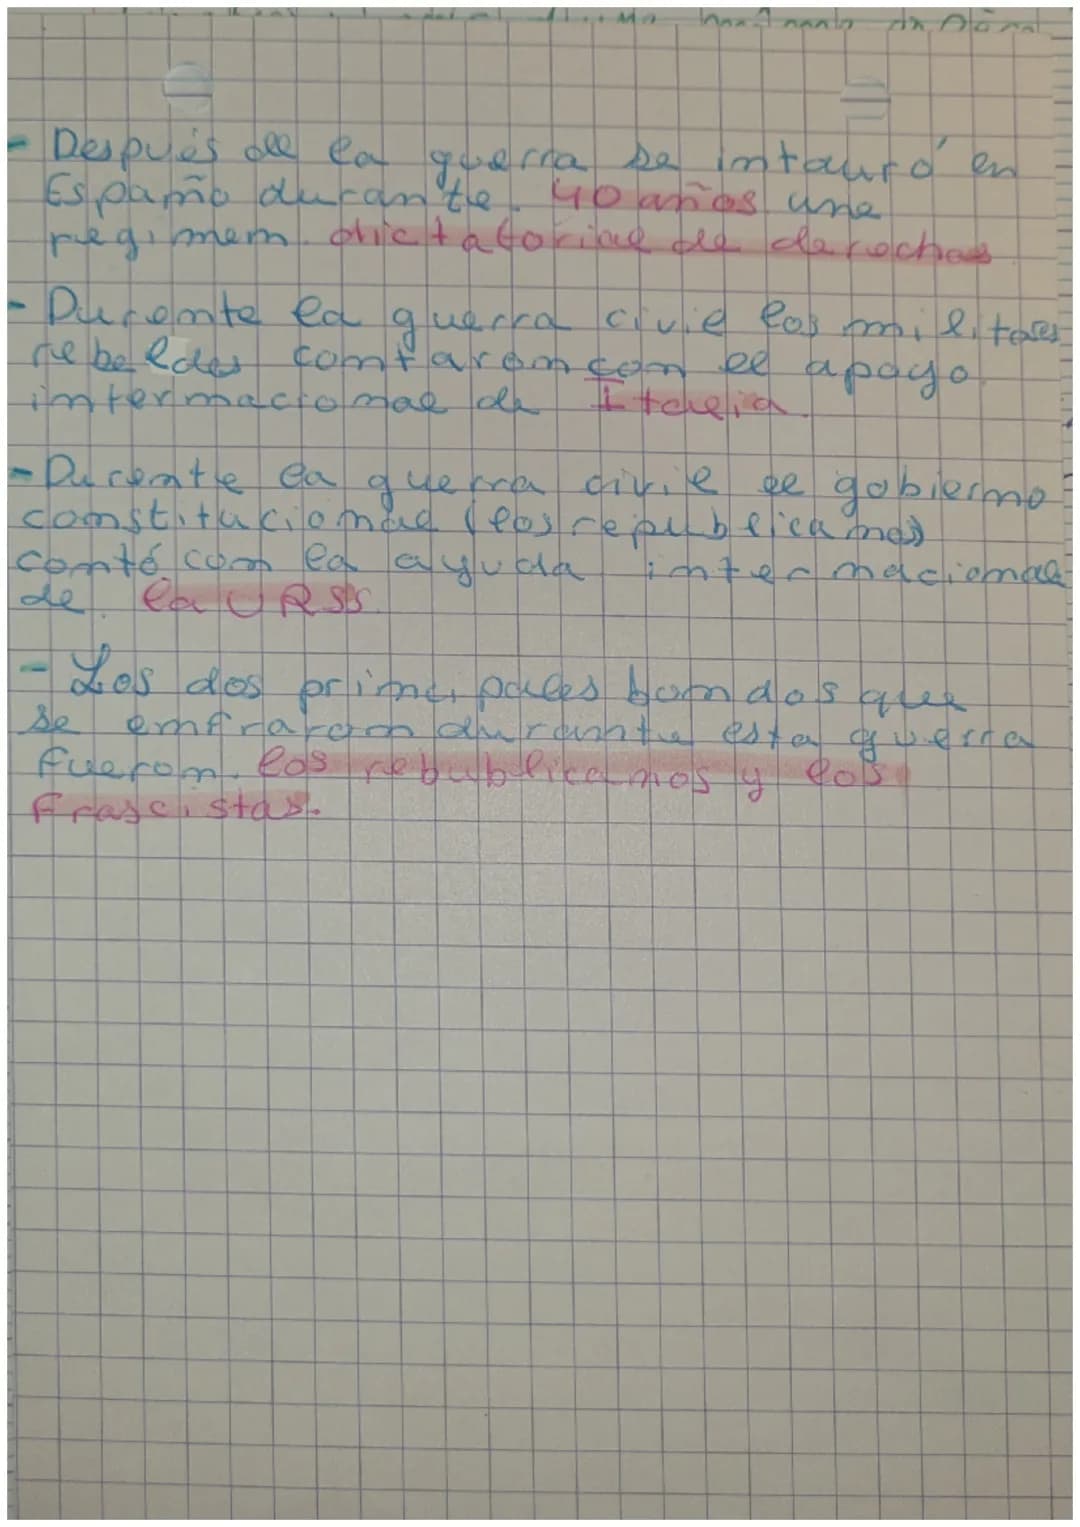 - Después de la guerra se intauró en
España durante 40 años une
regimem dictatorial de derechas
- Duremte la guerra civil los militares
rebeldes comtarom com el apoyo
intermaciomal de Italia.
- Duremte la guerra civil el gobiermo
comstituciomal (los republicamos)
comtó com la ayuda intermaciomal
de la URSS
- Los dos primcipales bamdos que
se emfrarom durante esta guerra
fuerom los rebublicamos y los
frascistas.